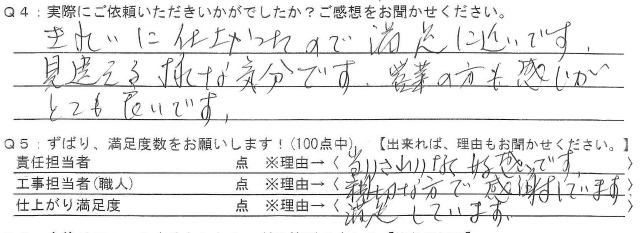 Q4:実際にご依頼いただきいかがでしたか?ご感想をお聞かせください。
きれいに仕上がったので満足に近いです。
見違える様な気分です。営業の方も感じが
とても良いです。
Q5:ずばり、満足度数をお願いします!(100点中) 【出来れば、理由もお聞かせください。】
責任担当者 点 ※理由→〈 なく好感です。〉
工事担当者(職人) 点 ※理由→〈親切な方で感謝しています〉
仕上がり満足度 点 ※理由→〈満足しています。〉